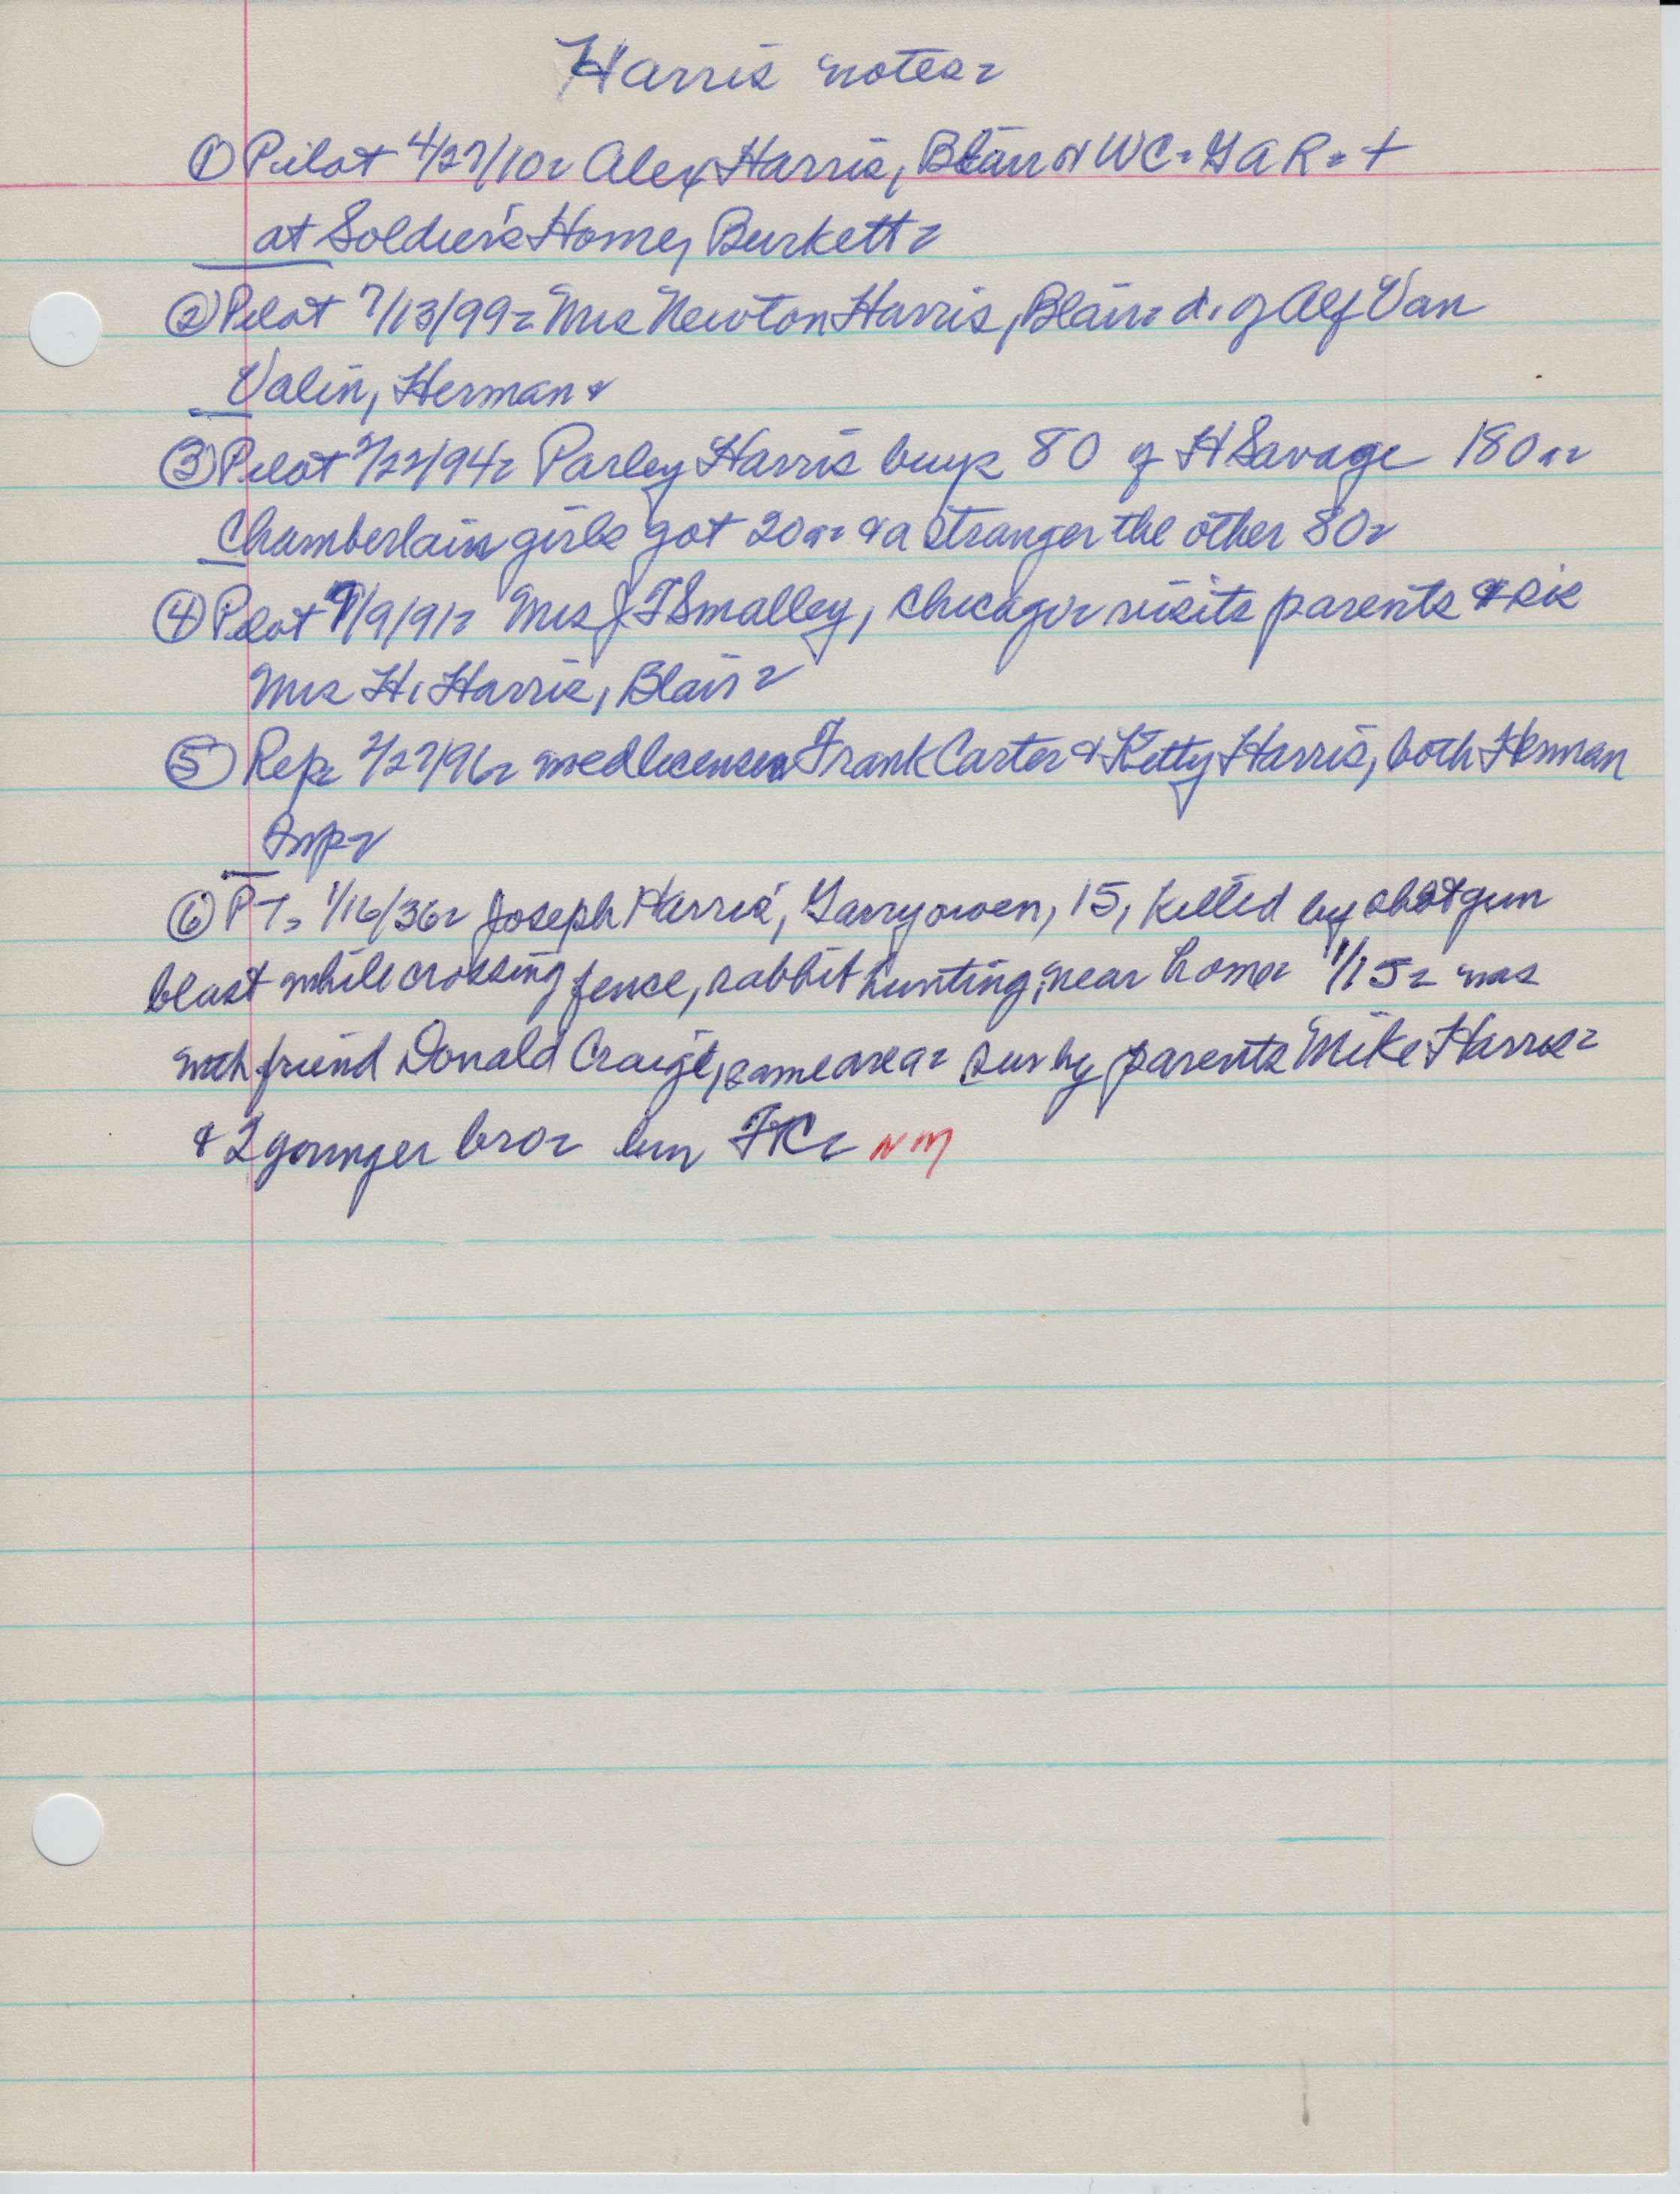 Harris notes-
① Pilot 4/27/10- Alex Harris, Blair N W C- G A R- +
at Soldier's Home, Burkett-
② Pilot 7/13/99- Mrs Newton Harris, Blair- d. of Alf Van
Valin, Herman-
③ Pilot /22/94- Parley Harris buys 80 of H Savage 180 a-
Chamberlain girls got 20 a- & a stranger the other 80-
④ Pilot /9/91- Mrs J F Smalley, Chicago- visits parents & sis
Mrs H. Harris, Blair-
⑤ Rep- 2/27/96- wed license Frank Carter & Kitty Harris, both Herman
⑥ P T- 1/16/36- Joseph Harris, Garryowen, 15, killed by shotgun
blast while crossing fence, rabbit hunting, near home 1/15- was
with friend Donald Craig, same area- sur by parents Mike Harris-
& 2 younger bro- NM